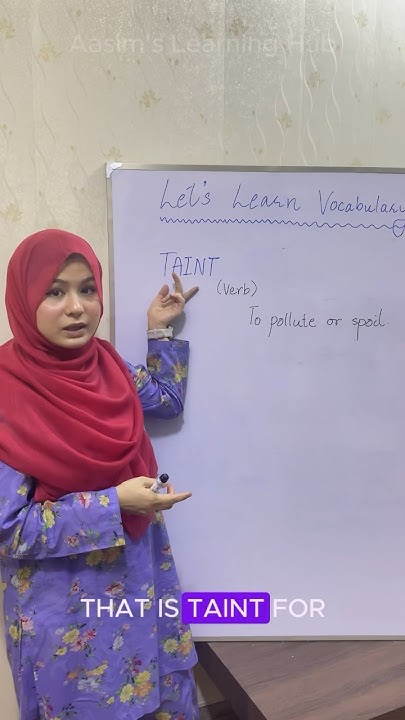 Aasim's Learning Hub
Let's Learn Vocabulary
TAINT
(Verb)
To pollute or spoil.
THAT IS TAINT FOR